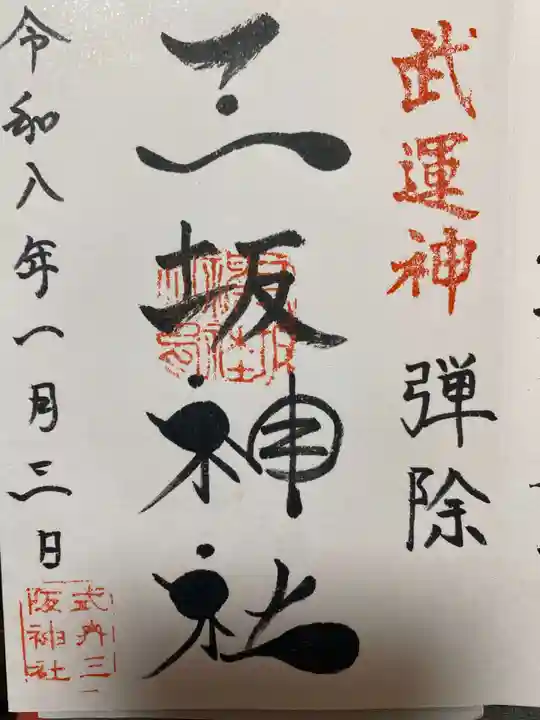 武運神
弾除
三坂神社
令和八年一月三日
式内三
坂神社